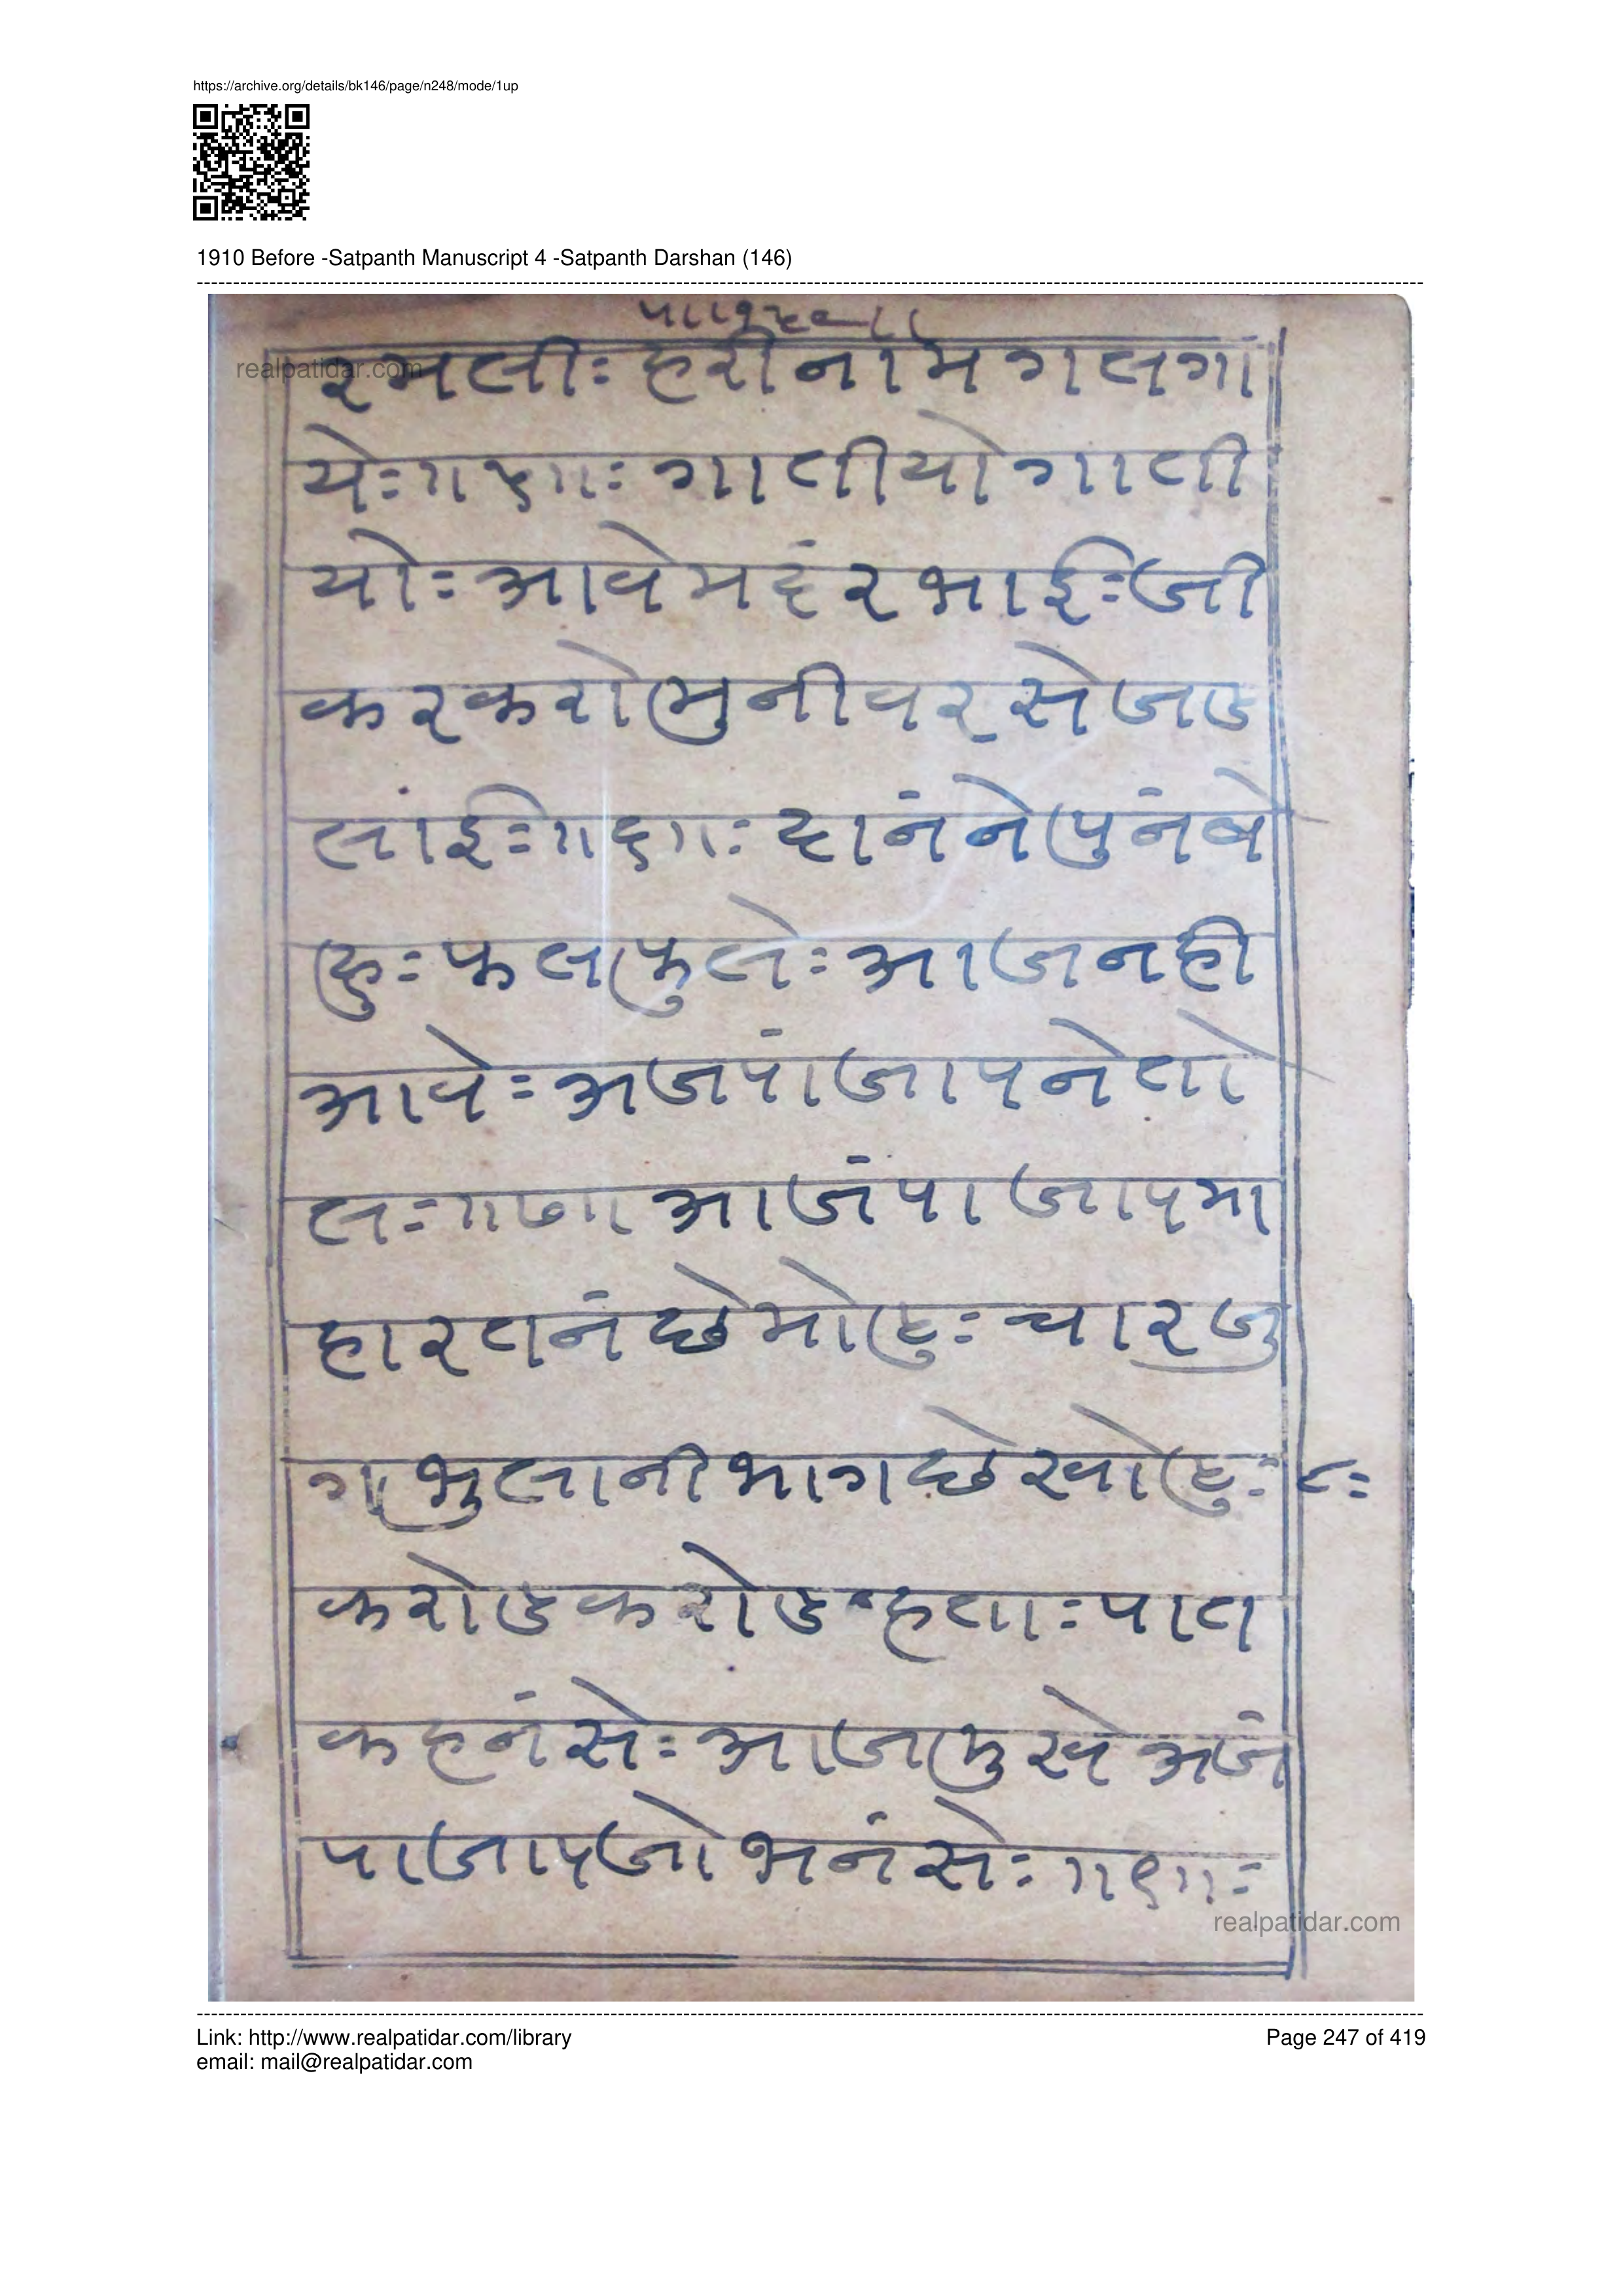 https://archive.org/details/bk146/page/n248/mode/1up
1910 Before -Satpanth Manuscript 4 -Satpanth Darshan (146)
realpatidar.com
रमली: हरीनां मगलगा
ये:॥५॥: गातीयो गाती
यो: आवे मदंर भाई: जी
कर करो मुनीवर से जउ
लांई:॥६॥: दानंने पुनंबे
हु: फल फुले: आज नही
आवे: अजपां जापने तो
ल:॥७॥ आजंपा जाप मा
हा रतनं छे मोहु: चार जु
गा भुलानी भाग छे खोहु: ८:
करोड करोड हता: पात
क हनंसे: आज मुखे अजं
पा जाप जो भनंसे: ॥९॥:
realpatidar.com
Link: http://www.realpatidar.com/library
Page 247 of 419
email: mail@realpatidar.com